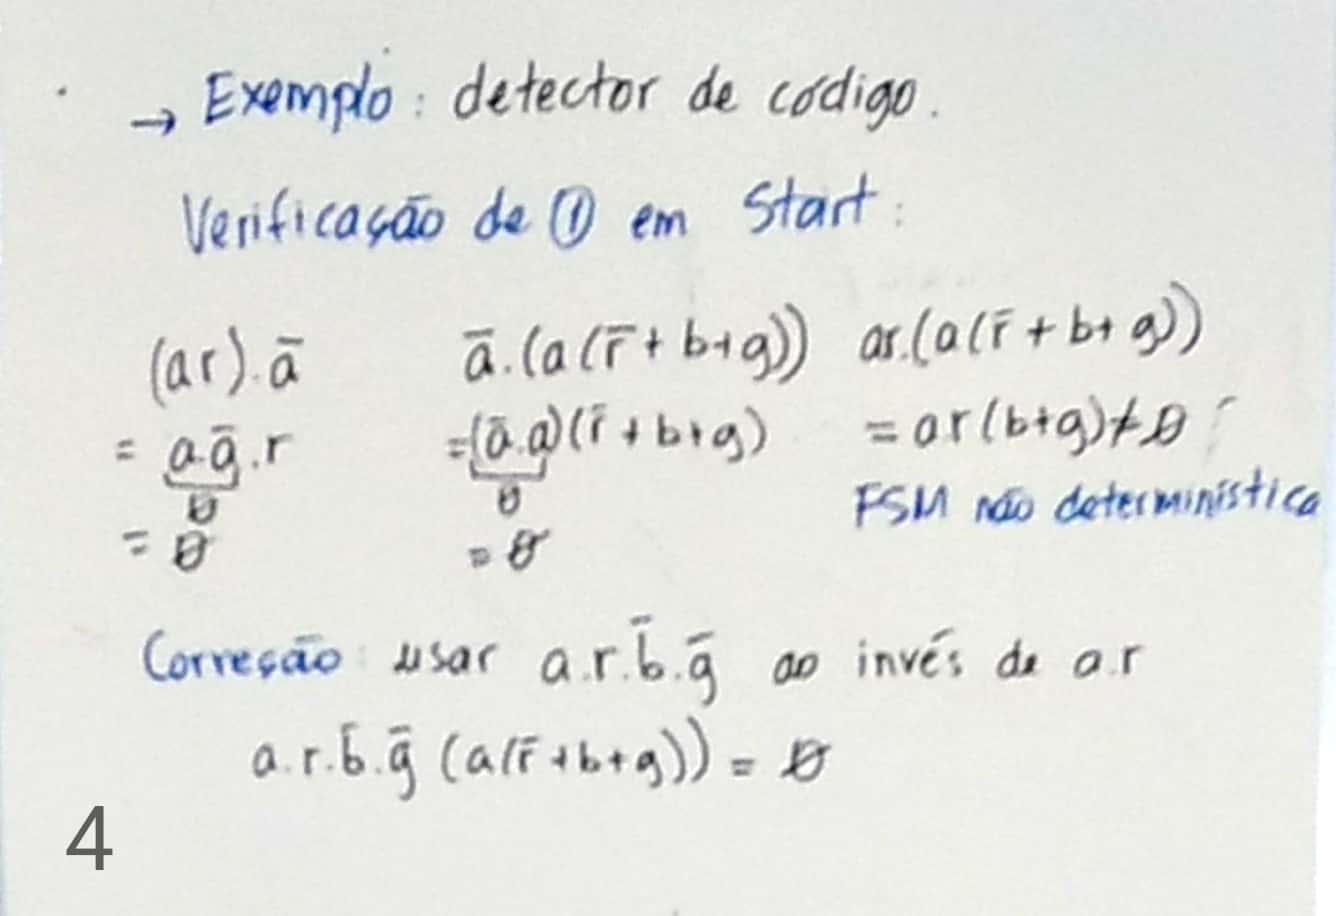 → Exemplo: detector de código.
Verificação de ① em Start:
(ar).ā    ā.(a(r̄ + b+g))    ar.(a(r̄ + b+g))
= a.ā.r    =(ā.a)(r̄ + b+g)    = ar(b+g)≠0
0    0    FSM não determinística
= 0    = 0
Correção: usar a.r.b̄.ḡ ao invés de a.r
a.r.b̄.ḡ (a(r̄+b+g)) = 0
4